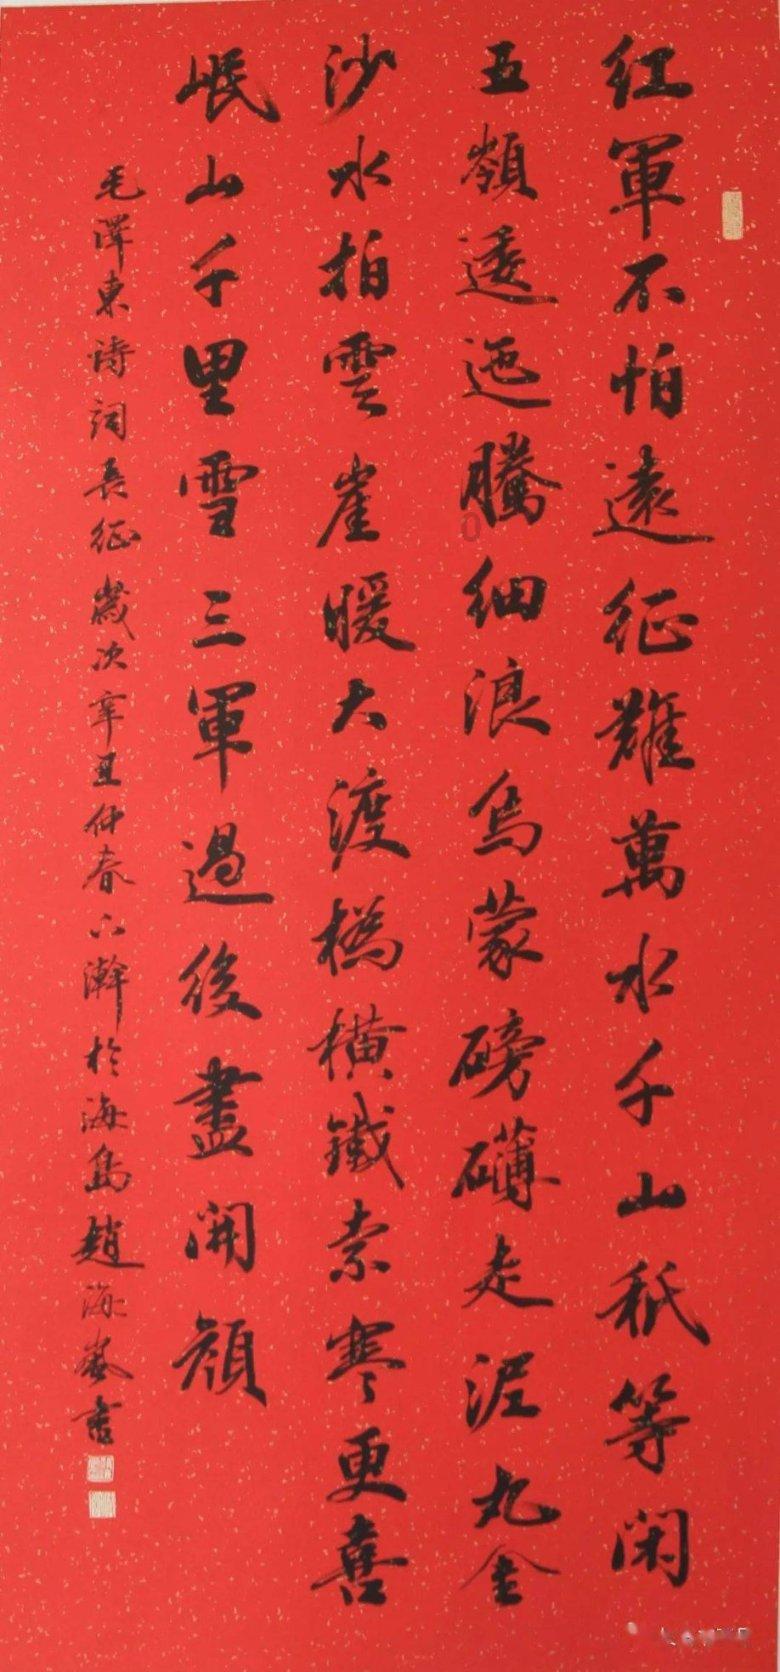 红軍不怕遠征難萬水千山秖等闲
五嶺逶迤騰细浪烏蒙磅礴走泥丸金
沙水拍雲崖暖大渡橋横鐵索寒更喜
岷山千里雪三軍過後盡開顔
毛澤東诗词長征歲次辛丑仲春下瀚於海島趙海嵐書